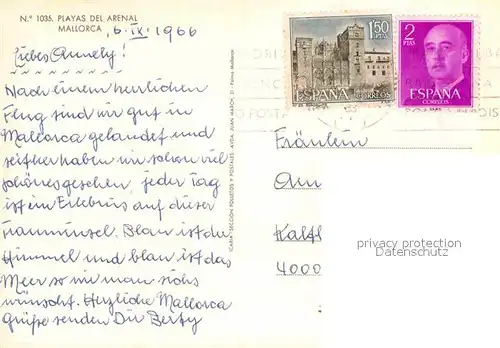 N.º 1035. PLAYAS DEL ARENAL
MALLORCA
6.IX.1966
Liebes Annely!
Nach einem herrlichen
Flug sind wir gut in
Mallorca gelandet und
seither haben wir schon viel
schönes gesehen, jeder Tag
ist ein Erlebnis auf dieser
Trauminsel. Blau ist der
Himmel und blau ist das
Meer so wie man sichs
wünscht. Herzliche Mallorca
grüße senden Dir Berty
ICARIA-SECCION FOLLETOS Y POSTALES-AVDA. JUAN MARCH, 21 - Palma Mallorca
1'50
PTAS
ESPAÑA
CORREOS
2
PTAS
ESPAÑA
CORREOS
Fräulein
Ann
Kalth
4000
privacy protection
Datenschutz